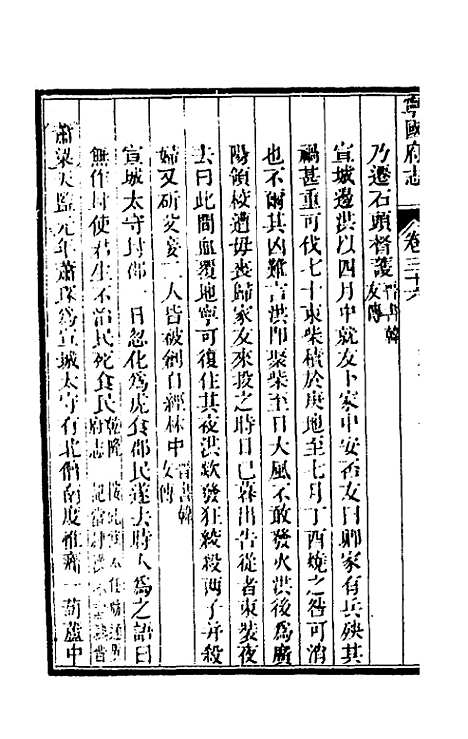 寧國府志
卷三十六
乃遷石頭督護晉書韓友傳
宣城邊洪以四月中就友卜家中安否友曰卿家有兵殃其
禍甚重可伐七十束柴積於庚地至七月丁酉燒之咎可消
也不爾其凶難言洪即聚柴至日大風不敢發火洪後為廣
陽領校遭母喪歸家友來投之時日已暮出告從者束裝夜
去曰此間血覆地寧可復住其夜洪欻發狂絞殺兩子并殺
婦又斫父妾二人皆被創自經林中晉書韓友傳
宣城太守封邵一日忽化為虎食郡民遂去時人為之語曰
無作封使君生不治民死食民乾隆府志
蕭梁天監元年蕭琛為宣城太守有北僧南度惟齎一葫蘆中